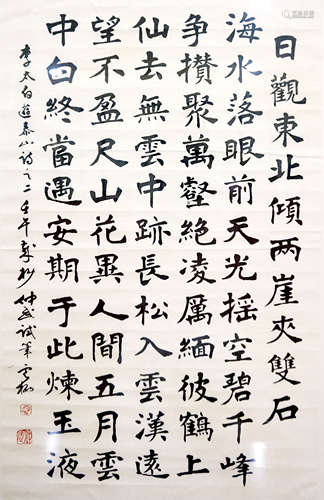 日觀東北傾两崖夾雙石
海水落眼前天光摇空碧千峰
争攢聚萬壑絶凌厲緬彼鶴上
仙去無雲中跡長松入雲漢遠
望不盈尺山花異人間五月雪
中白終當遇安期于此煉玉液
李太白遊泰山詩之二壬午歲杪仲試筆